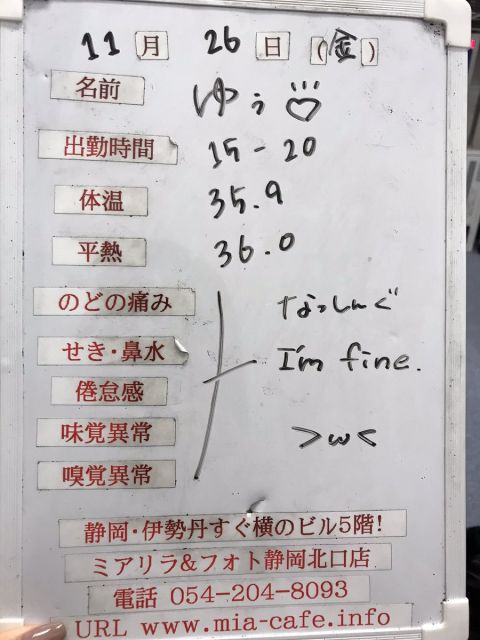 11月 26日 (金)
名前 ゆぅ♡
出勤時間 15-20
体温 35.9
平熱 36.0
のどの痛み なっしんぐ
せき・鼻水 I'm fine.
倦怠感
味覚異常 >w<
嗅覚異常
静岡・伊勢丹すぐ横のビル5階!
ミアリラ&フォト静岡北口店
電話 054-204-8093
URL www.mia-cafe.info